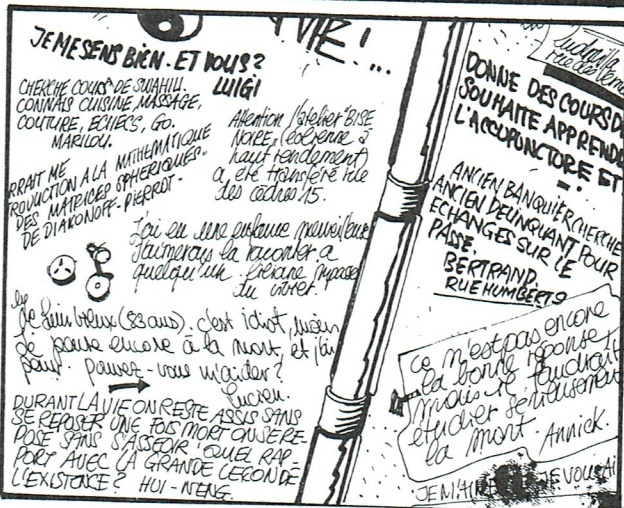 VIE!...
JE ME SENS BIEN. ET VOUS?
LUIGI
CHERCHE COURS DE SWAHILI.
CONNAIS CUISINE, MASSAGE,
COUTURE, ECHECS, GO.
MARILOU.
RRAIT ME
RODUCTION A LA MATHEMATIQUE
DES MATRICES SPHERIQUES..
DE DIAKONOFF. PIERROT-
Attention l'atelier "BISE
NOIRE" (éolienne à
haut rendement)
a été transféré rue
des cèdres 15.
J'ai eu une enfance merveilleuse
J'aimerais la raconter a
quelqu'un.
vieux (83 ans). c'est idiot, mais
je pense encore à la mort, et j'ai
peur. pouvez-vous m'aider?
Lucien.
DURANT LA VIE ON RESTE ASSIS SANS
SE REPOSER UNE FOIS MORT ON SE RE-
POSE SANS S'ASSEOIR QUEL RAP
PORT AVEC LA GRANDE LECON DE
L'EXISTENCE? HUI-NENG.
Ludmila
rue des
DONNE DES COURS D
SOUHAITE APPRENDRE
L'ACCUPUNCTURE ET
ANCIEN BANQUIER CHERCHE
ANCIEN DELINQUANT POUR
ECHANGES SUR LE
PASSE.
BERTRAND.
RUE HUMBERT 9
ça n'est pas encore
la bonne réponse,
mais il faudrait
étudier sérieusement
la mort. Annick.
JE M'AI JE VOUS AI